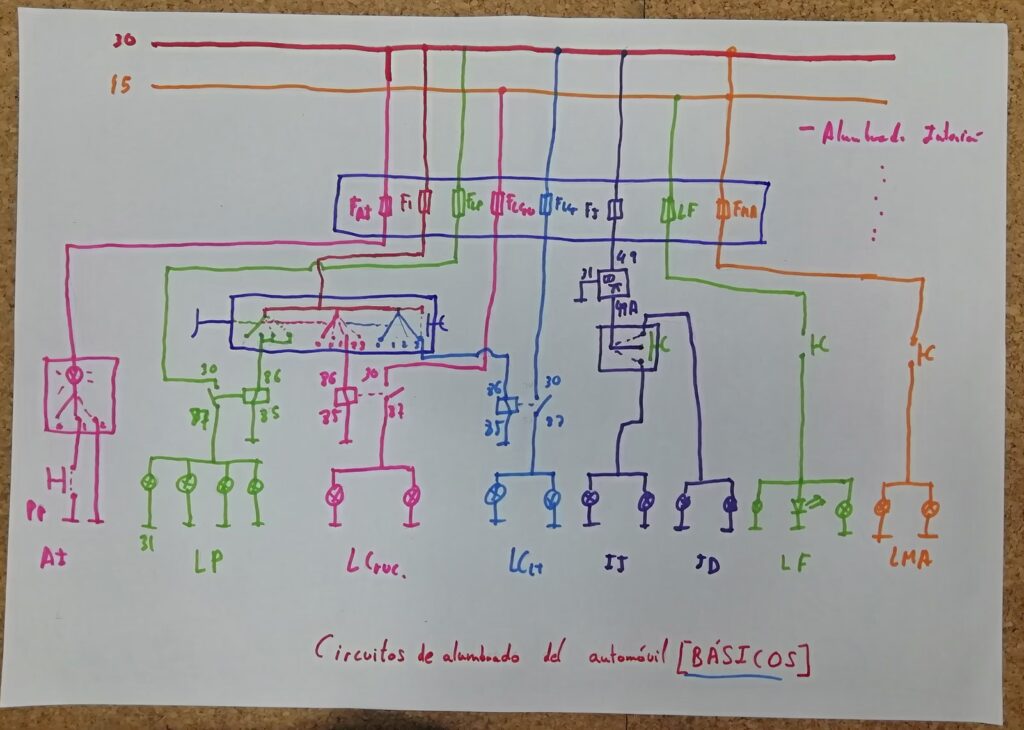 30
15
- Alumbrado Interior
FAI F1 FLP FLCru FLCr FI LF FMA
49
31
49A
30 86
87 85
86 30
85 87
86 30
85 87
0 1 2
PP
31
AI LP LCruc. LCLt II ID LF LMA
Circuitos de alumbrado del automóvil [BÁSICOS]